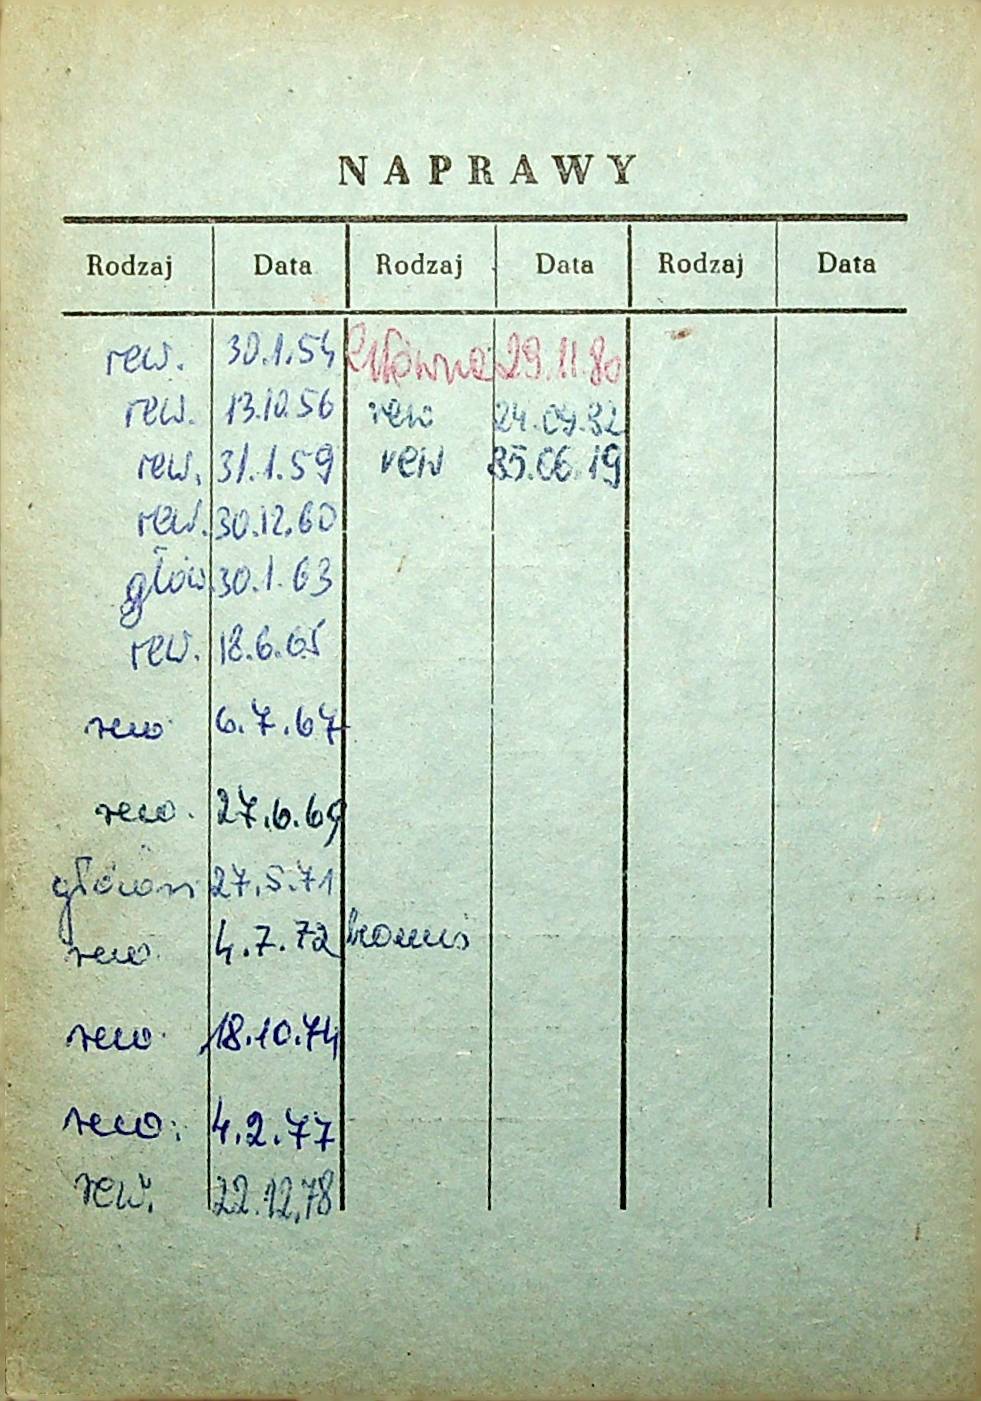 NAPRAWY
Rodzaj Data Rodzaj Data Rodzaj Data
rew. 30.1.54 Główna 29.11.80
rew. 13.10.56 rew 24.09.82
rew. 31.1.59 rew 85.06.19
rew. 30.12.60
głów. 30.1.63
rew. 18.6.65
rew 6.7.67
rew. 27.6.69
główn 27.5.71
rew. 4.7.72
rew 18.10.74
rew. 4.2.77
rew. 22.12.78